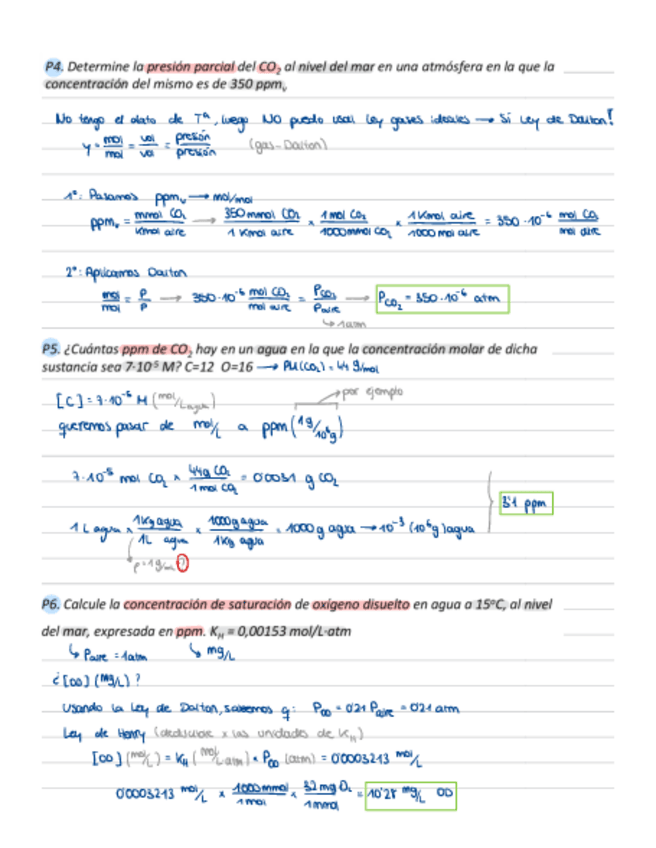 P4. Determine la presión parcial del CO₂ al nivel del mar en una atmósfera en la que la
concentración del mismo es de 350 ppmᵥ
No tengo el dato de Tª, luego NO puedo usar ley gases ideales → Sí Ley de Dalton!
y = mol/mol = vol/vol = presión/presión (gas-Dalton)
1º: Pasamos ppmᵥ → mol/mol
ppmᵥ = mmol CO₂/Kmol aire → 350 mmol CO₂/1 Kmol aire × 1 mol CO₂/1000 mmol CO₂ × 1 Kmol aire/1000 mol aire = 350·10⁻⁶ mol CO₂/mol aire
2º: Aplicamos Dalton
mol/mol = P/P → 350·10⁻⁶ mol CO₂/mol aire = P_CO₂/P_aire → P_CO₂ = 350·10⁻⁶ atm
↳ 1 atm
P5. ¿Cuántas ppm de CO₂ hay en un agua en la que la concentración molar de dicha
sustancia sea 7·10⁻⁵ M? C=12 O=16 → PM(CO₂) = 44 g/mol
[C] = 7·10⁻⁵ M (mol/L agua) → por ejemplo
queremos pasar de mol/L a ppm (1g/10⁶g)
7·10⁻⁵ mol CO₂ × 44g CO₂/1 mol CO₂ = 0'0031 g CO₂
3'1 ppm
1 L agua × 1Kg agua/1L agua × 1000g agua/1Kg agua = 1000 g agua → 10⁻³ (10⁶g) agua
P6. Calcule la concentración de saturación de oxígeno disuelto en agua a 15ºC, al nivel
del mar, expresada en ppm. K_H = 0,00153 mol/L·atm
↳ P_aire = 1atm ↳ mg/L
¿[OD] (mg/L)?
Usando la Ley de Dalton, sabemos q: P_OD = 0'21 P_aire = 0'21 atm
Ley de Henry (deducible x las unidades de K_H)
[OD] (mol/L) = K_H (mol/L·atm) × P_OD (atm) = 0'0003213 mol/L
0'0003213 mol/L × 1000 mmol/1 mol × 32 mg O₂/1 mmol = 10'28 mg/L OD